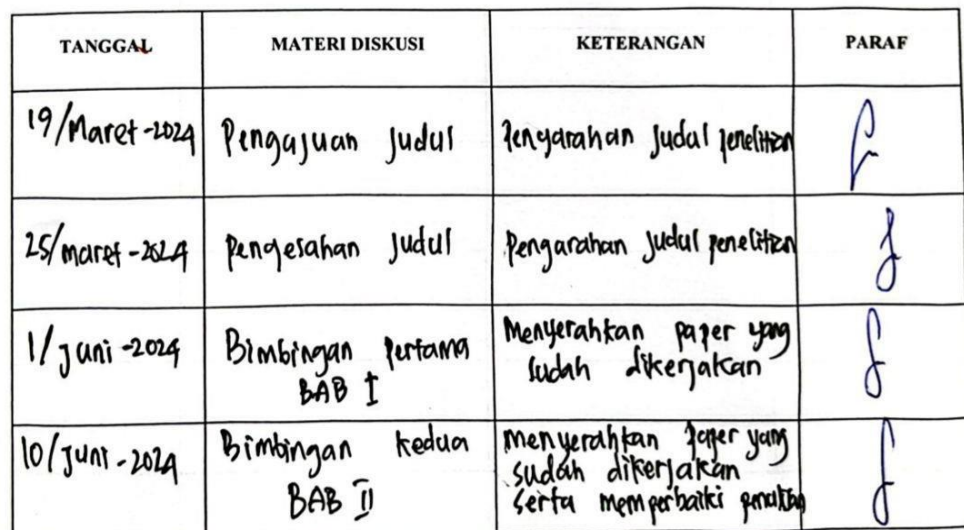 TANGGAL MATERI DISKUSI KETERANGAN PARAF
19/Maret-2024 Pengajuan Judul Pengarahan Judul penelitian
25/maret-2024 Pengesahan Judul Pengarahan Judul penelitian
1/juni-2024 Bimbingan Pertama Menyerahkan paper yang
BAB I sudah dikerjakan
10/juni-2024 Bimbingan kedua menyerahkan paper yang
BAB II sudah dikerjakan
serta memperbaiki